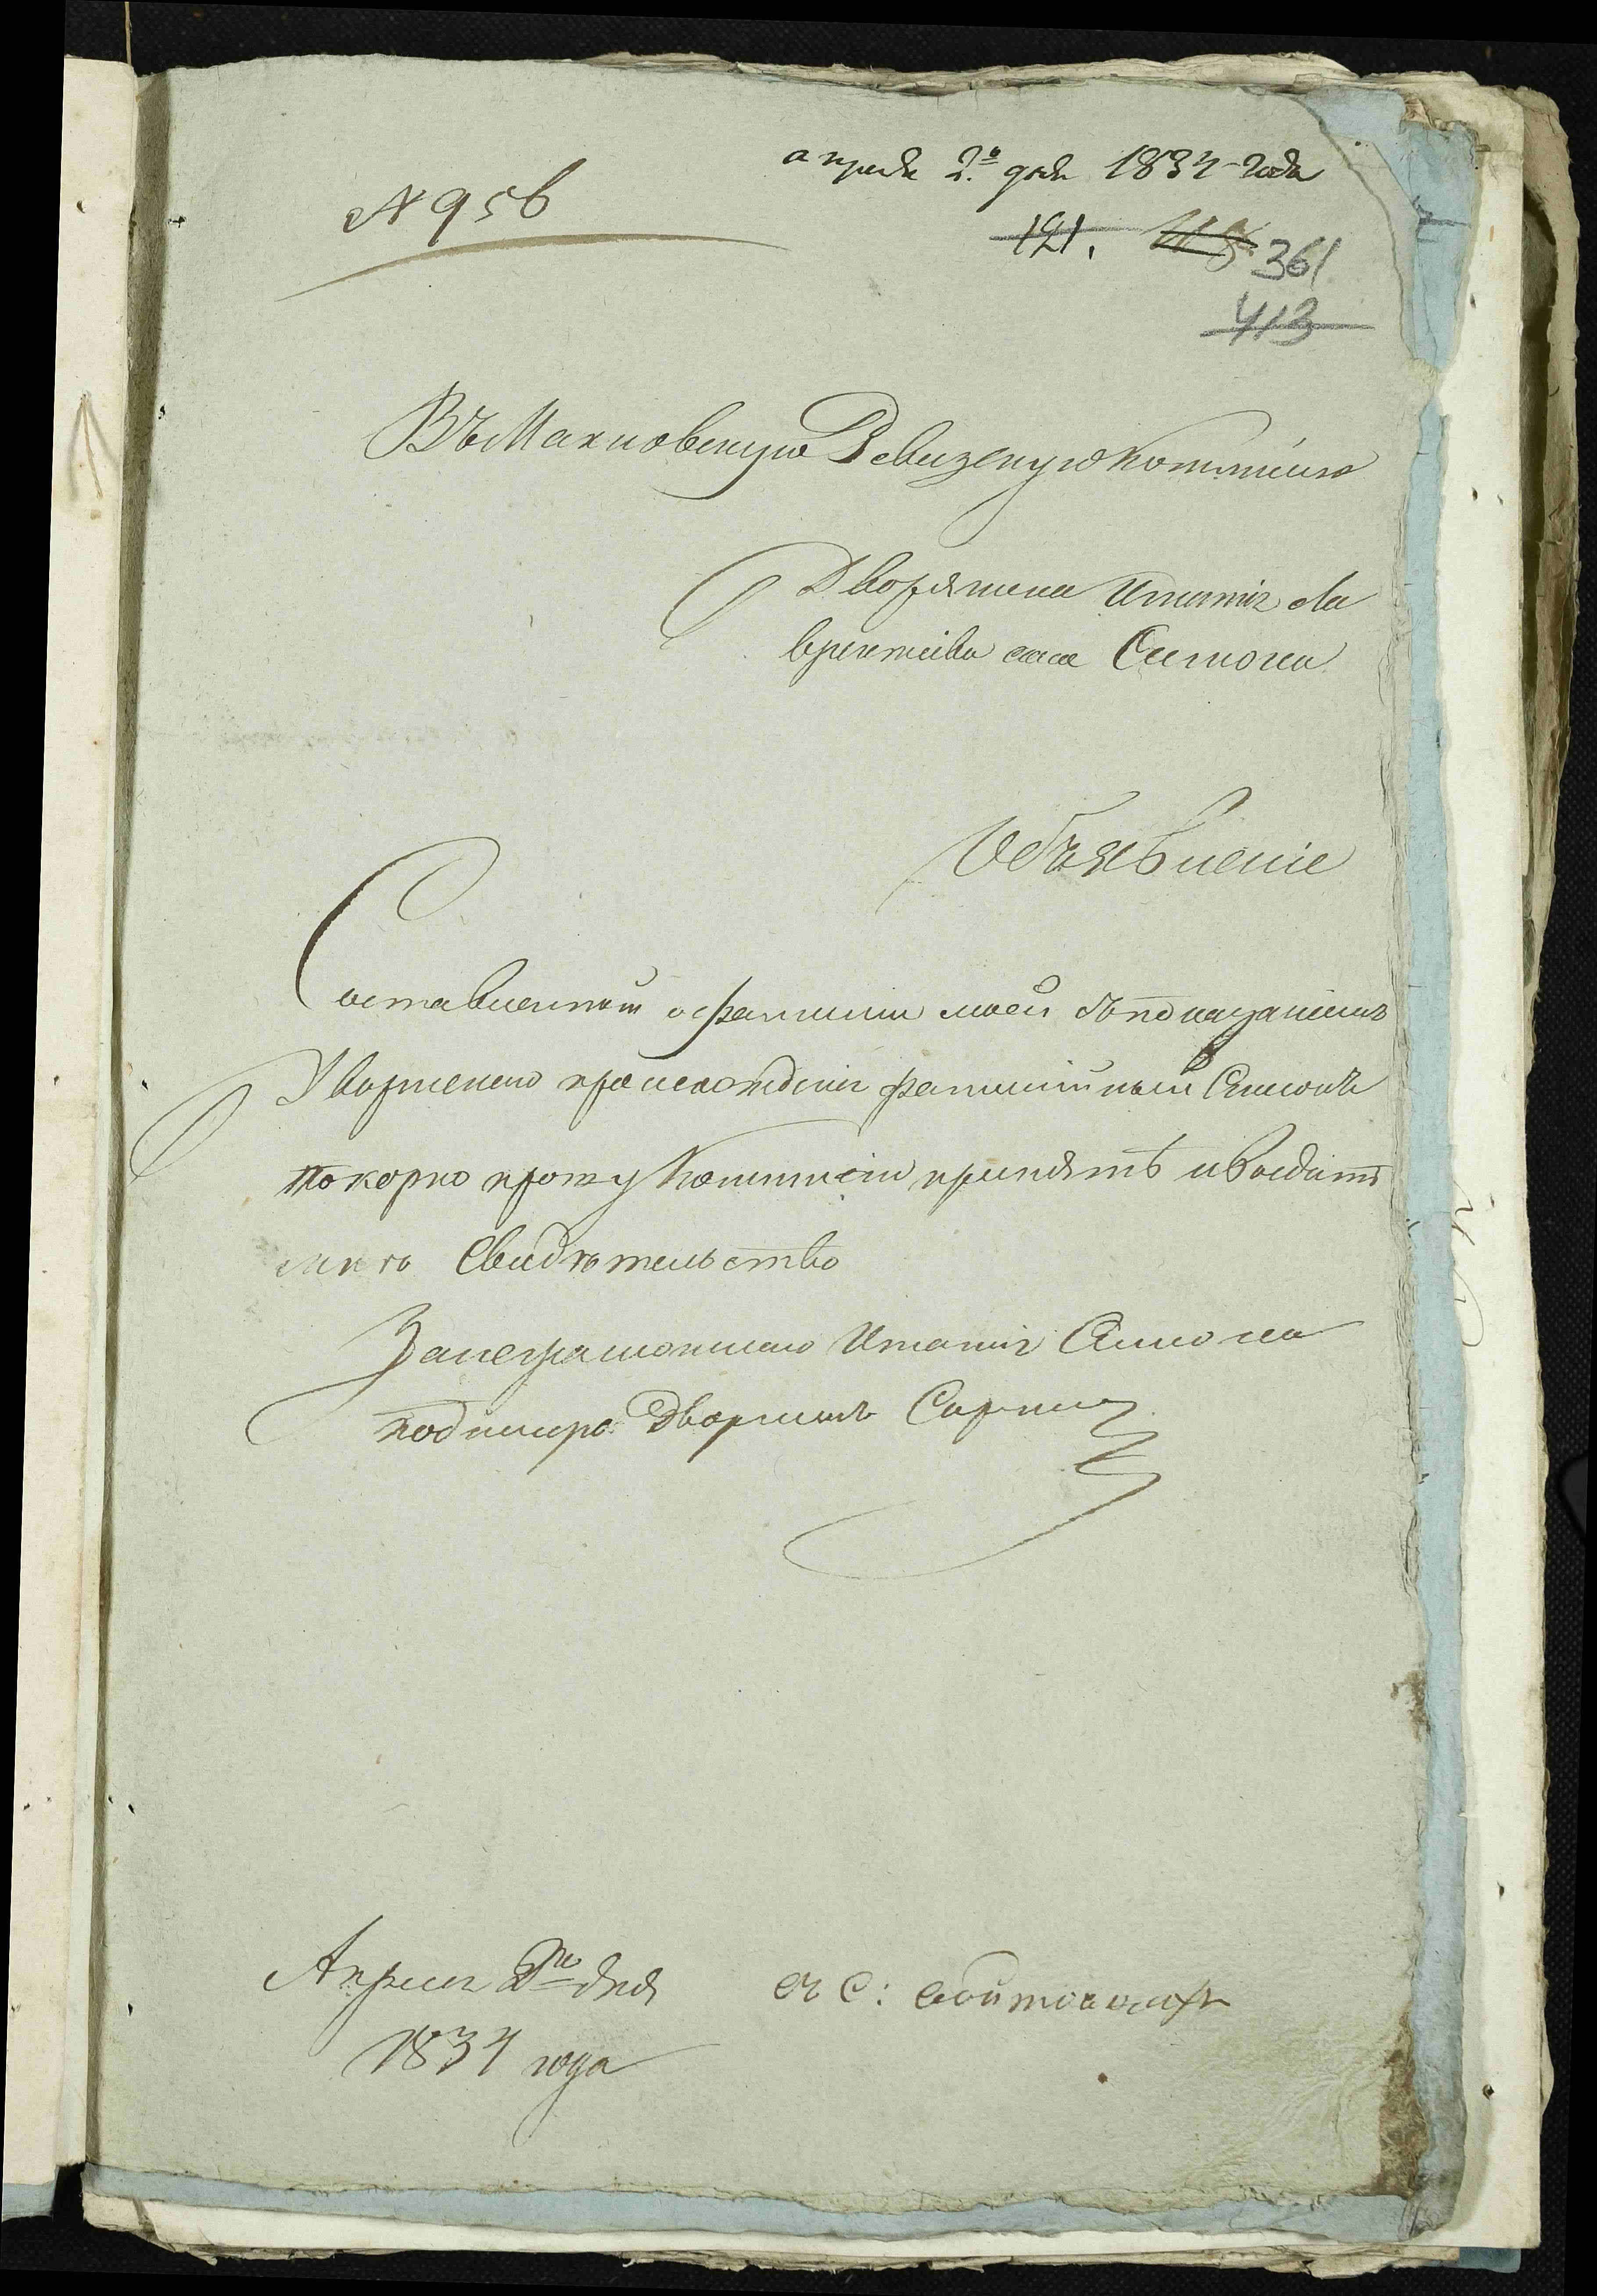 апреля 2.го дня 1834 года
№ 956
121.
361
413
Въ Махновскую Ревизскую Коммисію
Дворянина Игнатія Ла
врентіева сына Симона
Объявленіе
Составленный о фамиліи моей съ показаніемъ
Дворянскаго происхожденія фамилійный Списокъ
покорно прошу Коммисіи принять и выдать
мнѣ Свидѣтельство
За неграмотнаго Игнатія Симона
подписалъ Дворянинъ
Апреля 2го дня
1834 года